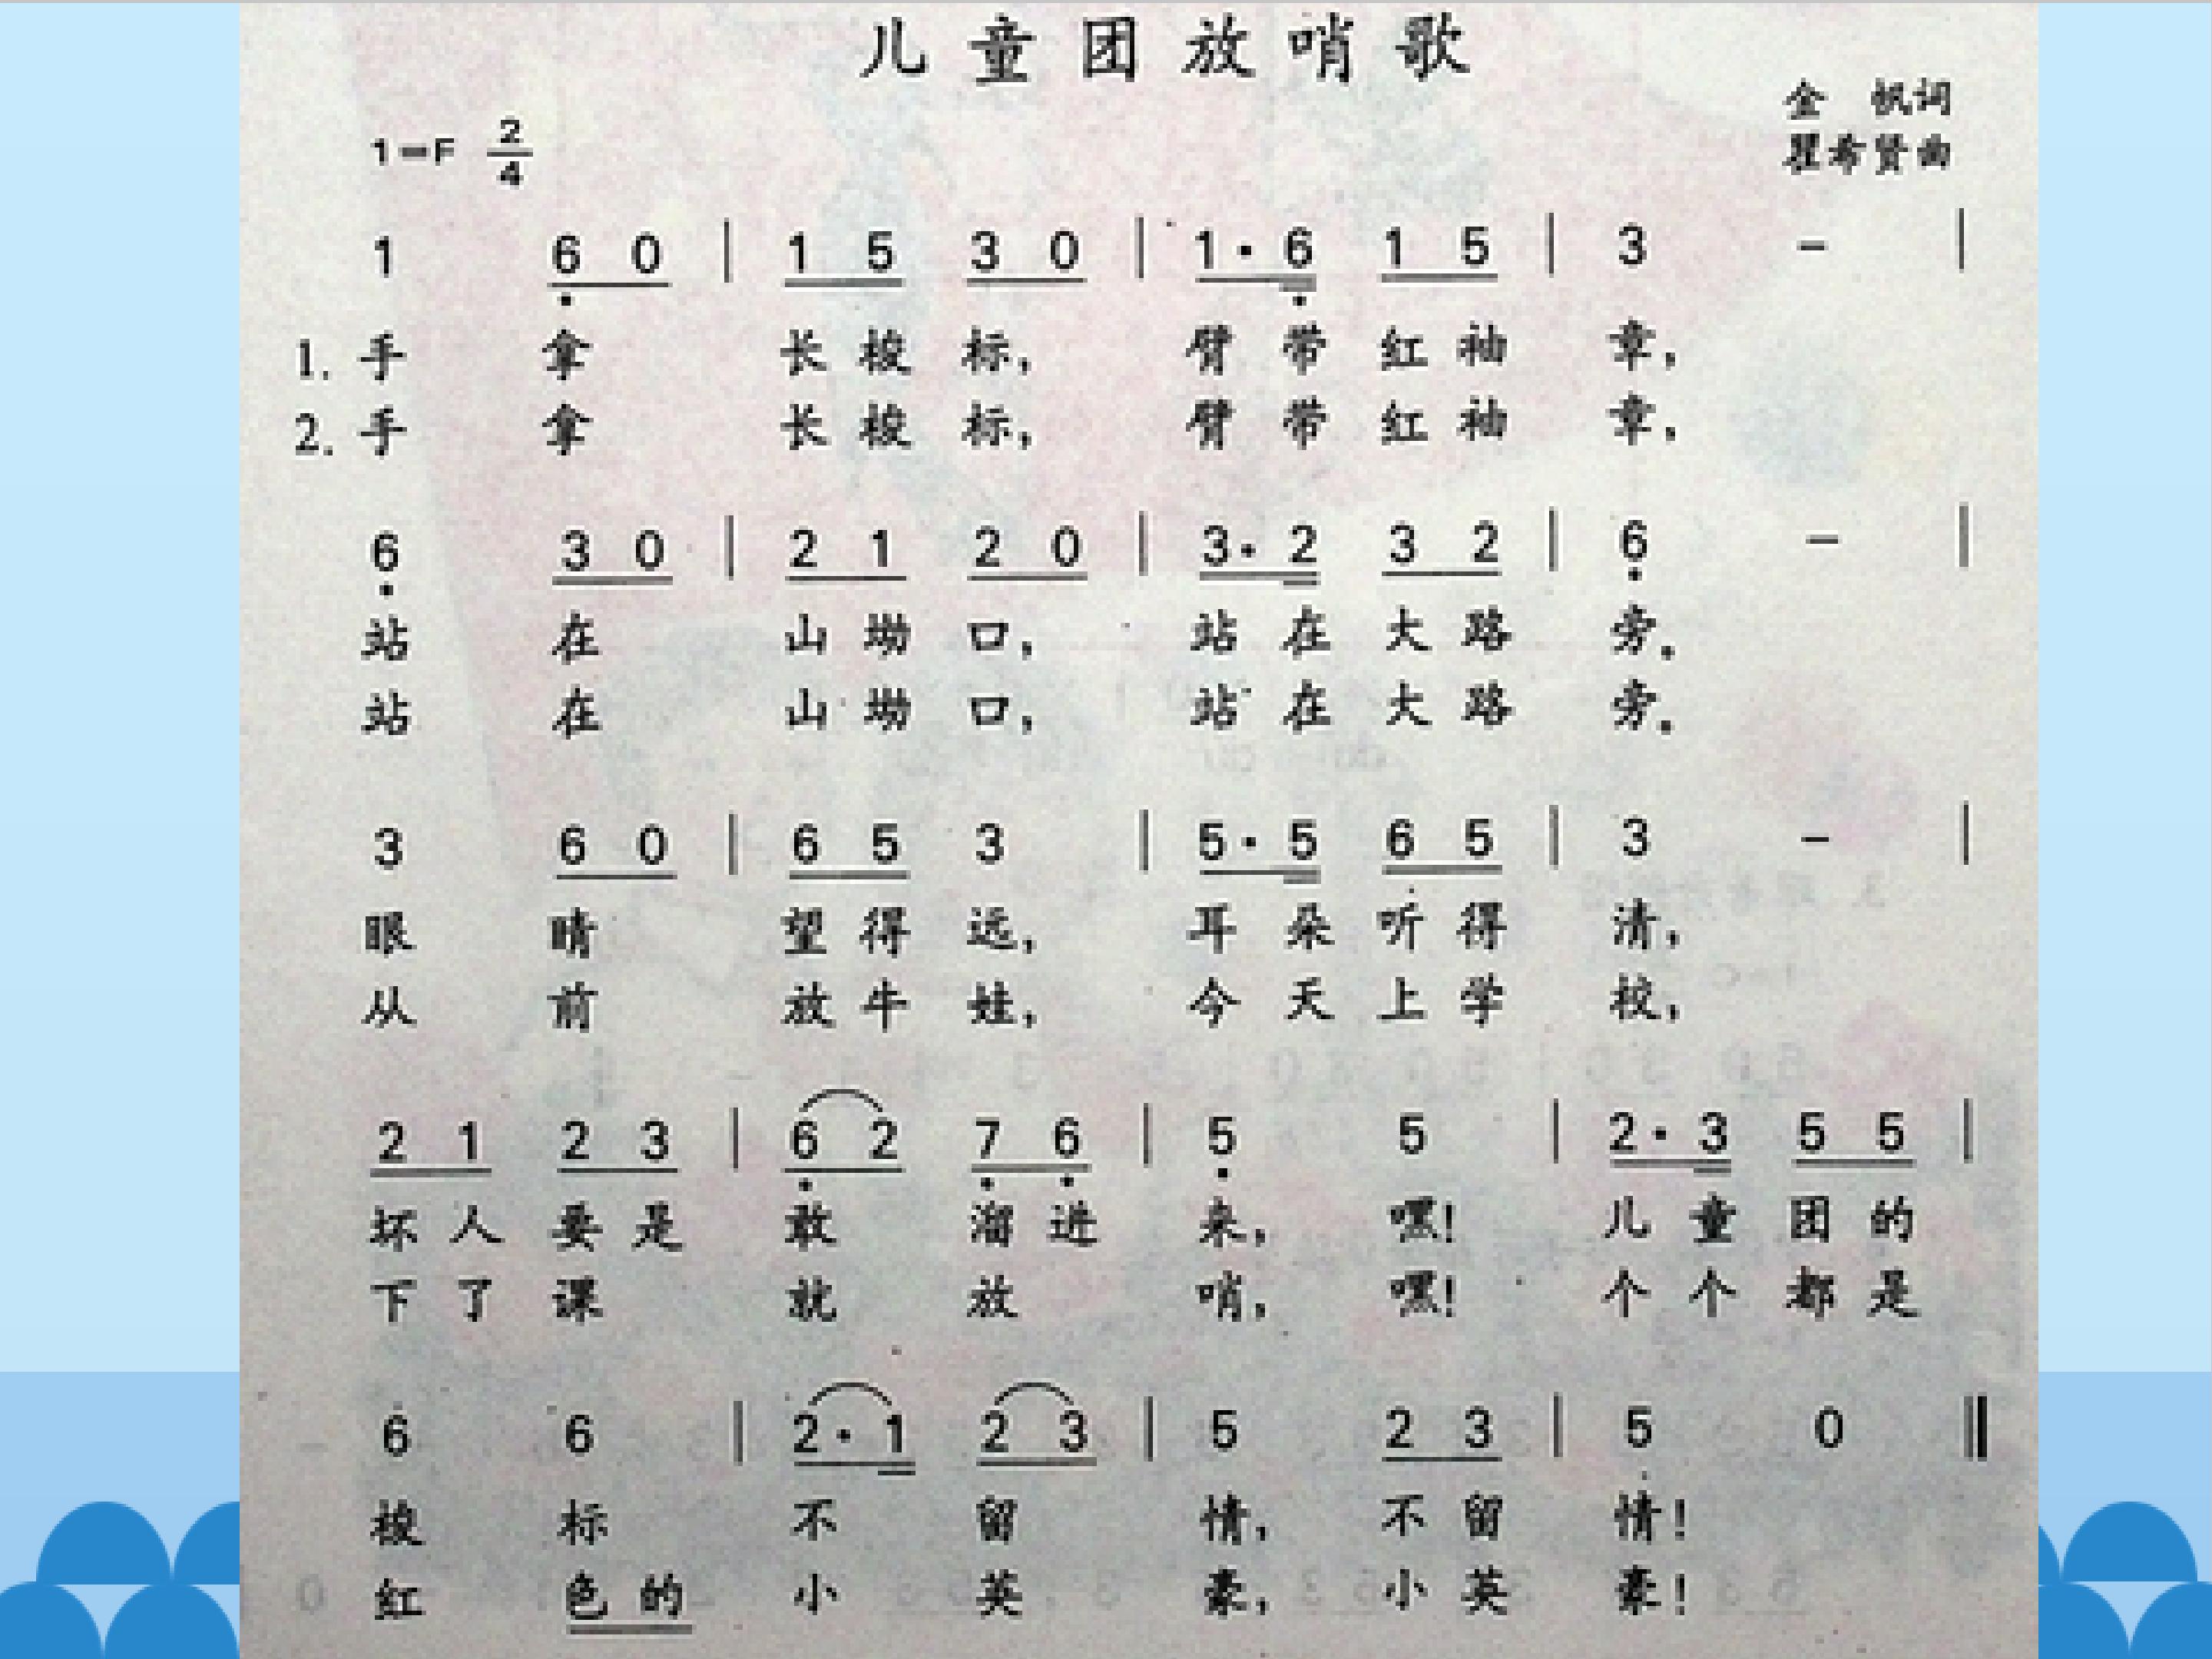 儿童团放哨歌
金 帆词
1=F 2/4
瞿希贤曲
1 6 0 | 1 5 3 0 | 1· 6 1 5 | 3 - |
1. 手 拿 长 梭 标, 臂 带 红 袖 章,
2. 手 拿 长 梭 标, 臂 带 红 袖 章,
6 3 0 | 2 1 2 0 | 3· 2 3 2 | 6 - |
站 在 山 坳 口, 站 在 大 路 旁。
站 在 山 坳 口, 站 在 大 路 旁。
3 6 0 | 6 5 3 | 5· 5 6 5 | 3 - |
眼 睛 望 得 远, 耳 朵 听 得 清,
从 前 放 牛 娃, 今 天 上 学 校,
2 1 2 3 | 6 2 7 6 | 5 5 | 2· 3 5 5 |
坏 人 要 是 敢 溜 进 来, 嘿! 儿 童 团 的
下 了 课 就 放 哨, 嘿! 个 个 都 是
6 6 | 2· 1 2 3 | 5 2 3 | 5 0 ‖
梭 标 不 留 情, 不 留 情!
红 色 的 小 英 豪, 小 英 豪!